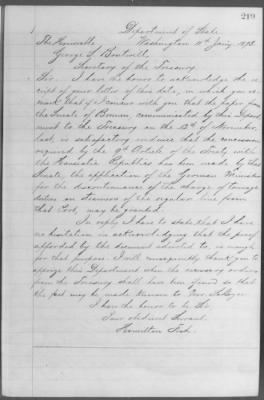 219
Department of State
Washington 11th Jany. 1873.
The Honorable
George S. Boutwell
Secretary of the Treasury
Sir: I have the honor to acknowledge the re-
ceipt of your letter of this date, in which you re-
mark that if I concur with you that the paper from
the Senate of Bremen, communicated by this Depart-
ment to the Treasury on the 12th of November,
last, is satisfactory evidence that the concession
required by the 9th Article of the Treaty with
the Hanseatic Republics has been made by that
Senate, the application of the German Minister
for the discontinuance of the charge of tonnage
duties on steamers of the regular line from
that Port, may be granted.
In reply I have to state that I have
no hesitation in acknowledging that the proof
afforded by the document adverted to, is enough
for that purpose. I will consequently thank you to
apprise this Department when the necessary orders
from the Treasury shall have been issued so that
the fact may be made known to Mr.
I have the honor to be Sir
Your obedient Servant
Hamilton Fish